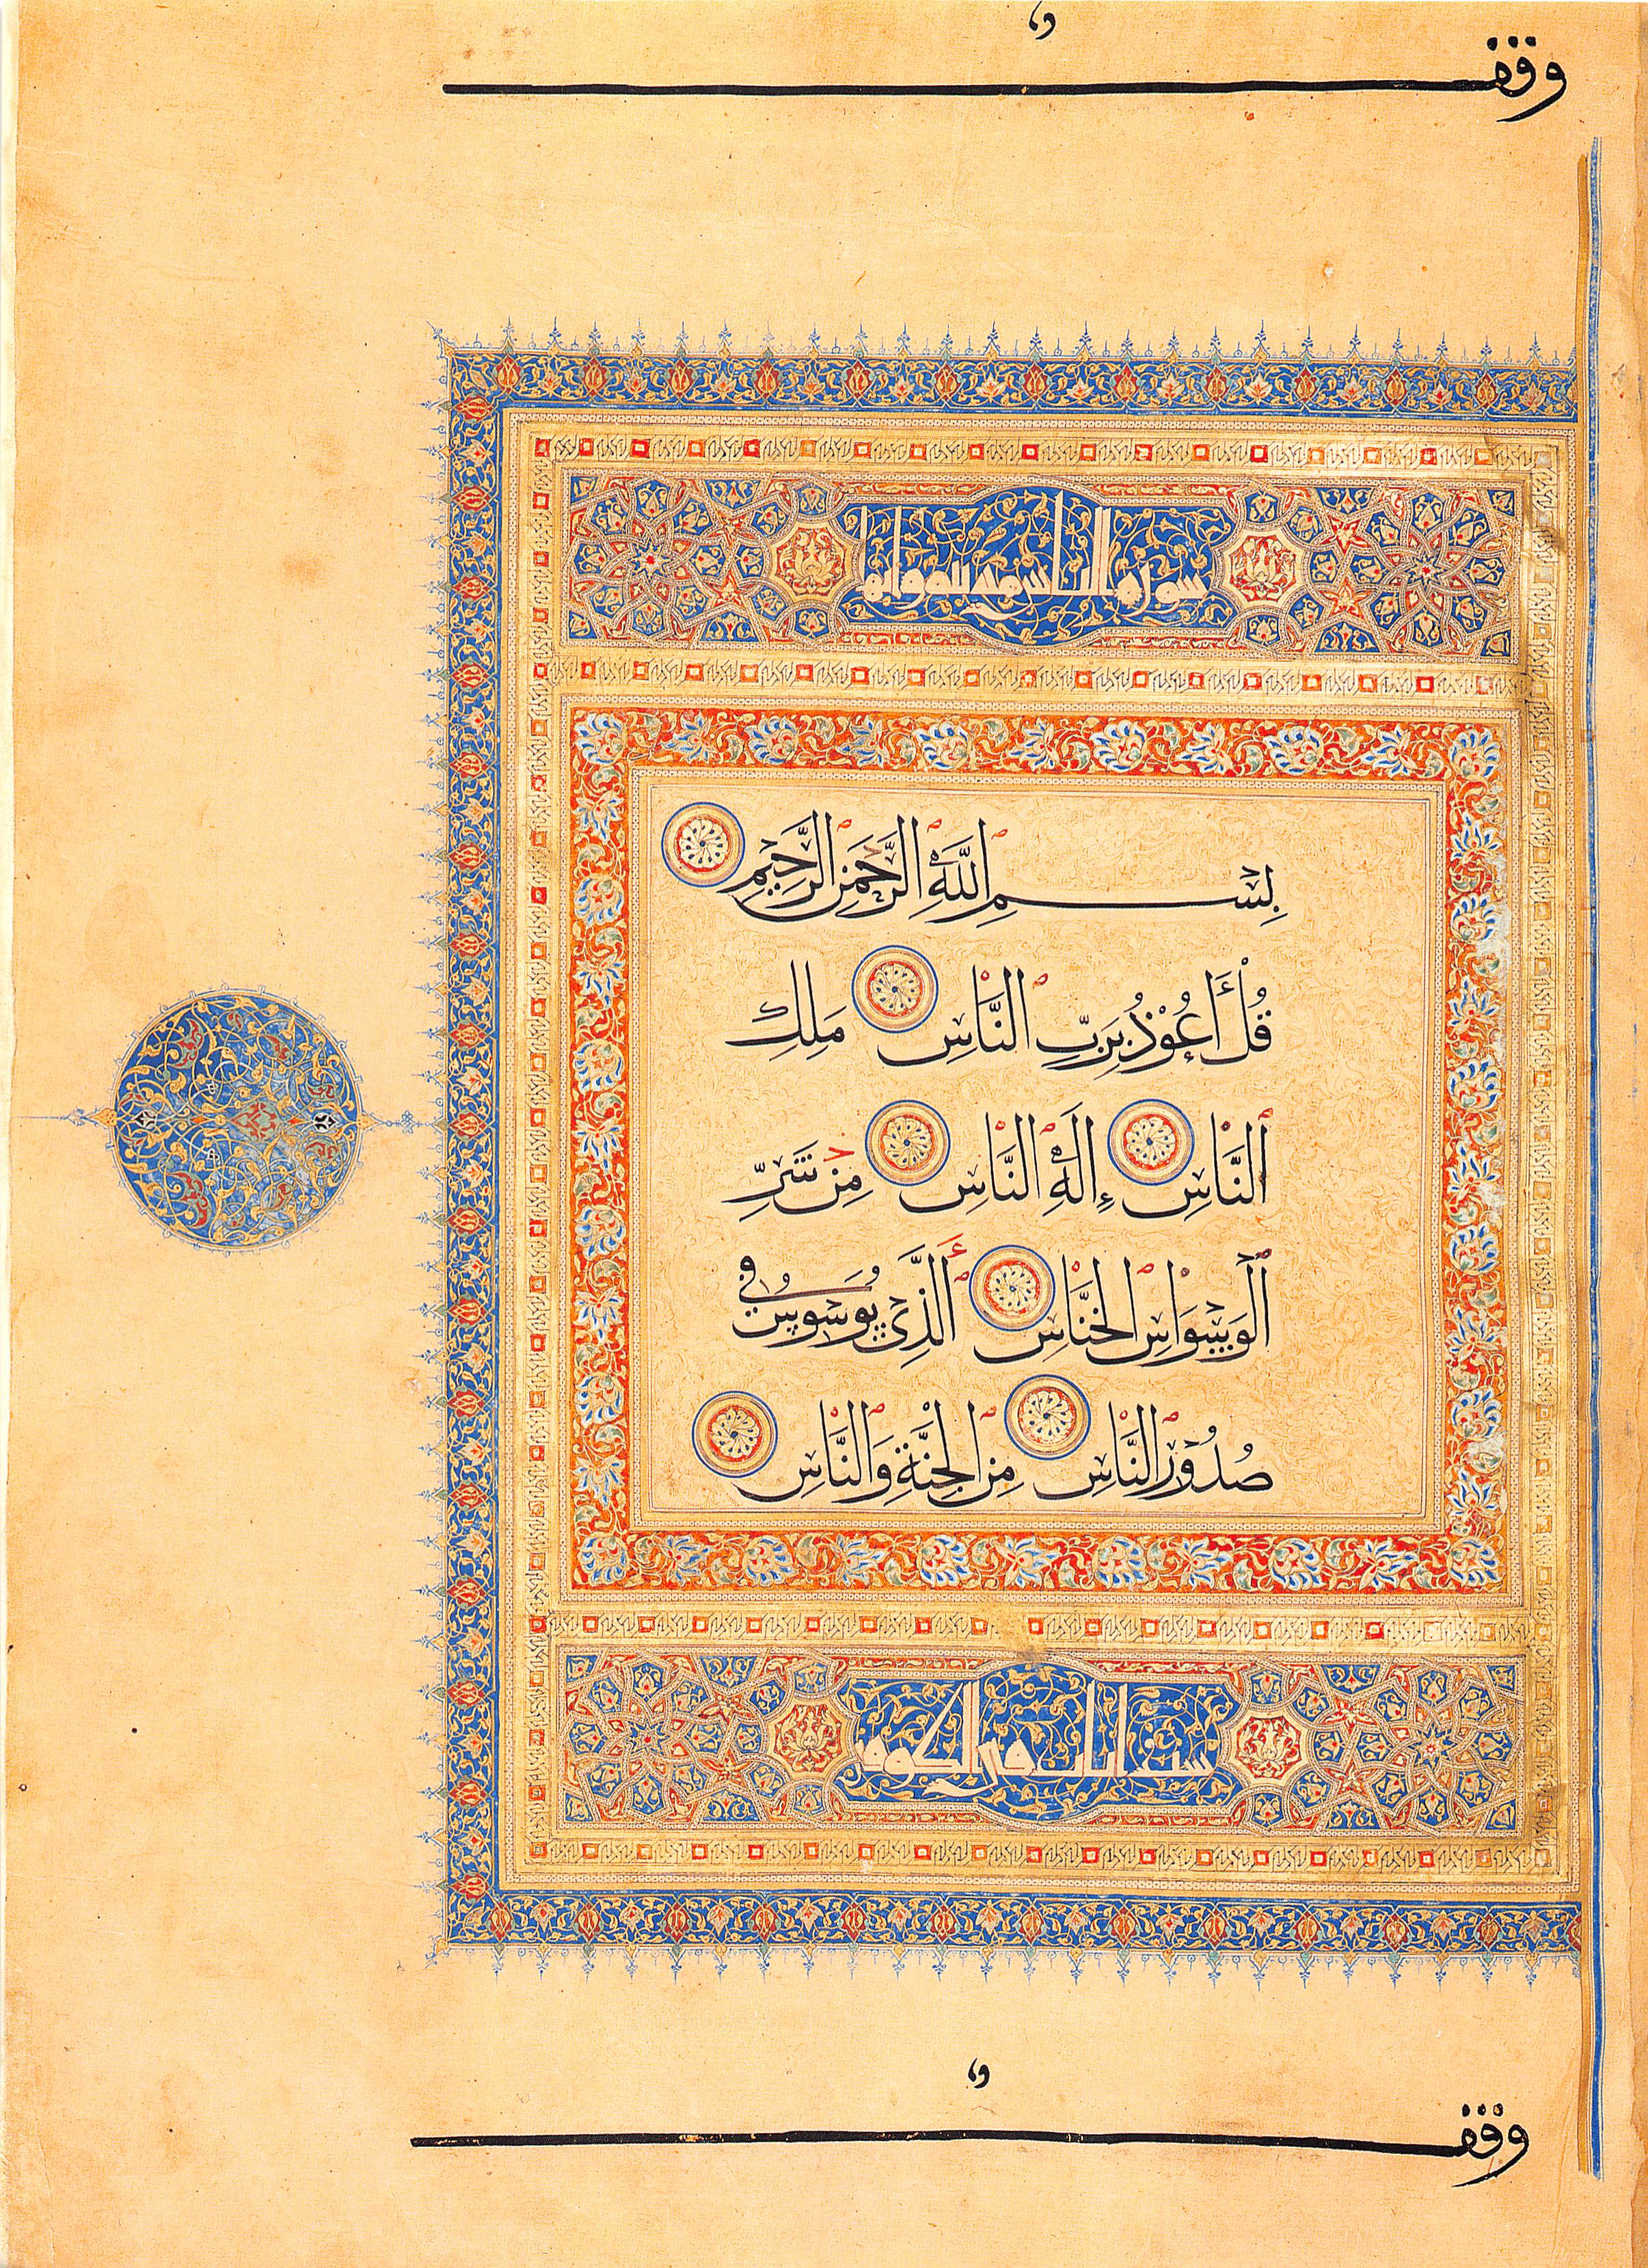 وقف
سورة الناس
بِسْمِ اللَّهِ الرَّحْمَنِ الرَّحِيْمِ
قُلْ أَعُوْذُ بِرَبِّ النَّاسِ مَلِكِ
النَّاسِ إِلَهِ النَّاسِ مِنْ شَرِّ
الْوَسْوَاسِ الْخَنَّاسِ الَّذِيْ يُوَسْوِسُ فِي
صُدُوْرِ النَّاسِ مِنَ الْجِنَّةِ وَالنَّاسِ
ست ايات في الكوفي
وقف